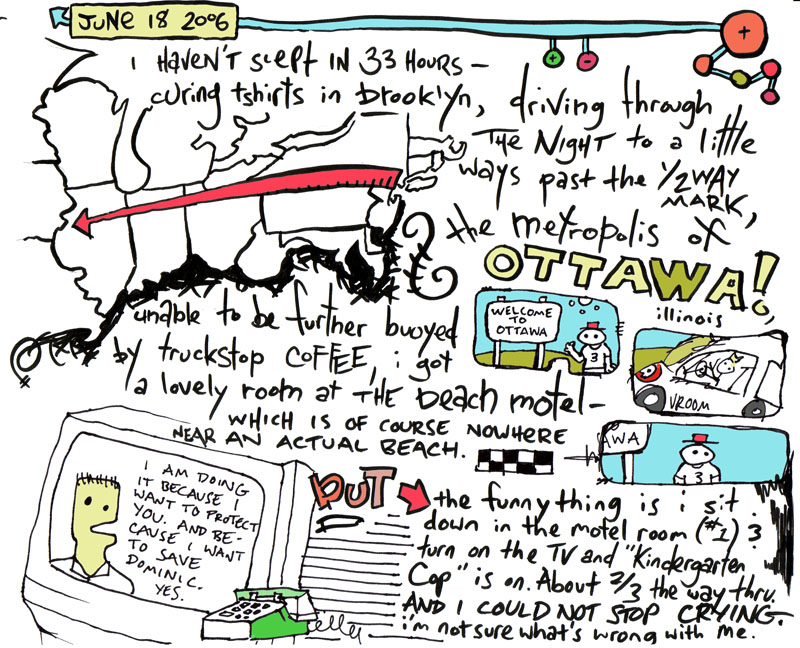 JUNE 18 2006
i HAVEN'T SLEPT IN 33 HOURS –
curing tshirts in brooklyn, driving through
THE NIGHT to a little
ways past the 1/2 WAY
MARK,
the metropolis of
OTTAWA!
illinois
WELCOME
TO
OTTAWA
3
VROOM
AWA
3
unable to be further buoyed
by truckstop COFFEE, i got
a lovely room at THE beach motel –
WHICH IS OF COURSE NOWHERE
NEAR AN ACTUAL BEACH.
I AM DOING
IT BECAUSE I
WANT TO PROTECT
YOU. AND BE-
CAUSE I WANT
TO SAVE
DOMINIC.
YES.
BUT
the funny thing is i sit
down in the motel room (#1) &
turn on the TV and "Kindergarten
Cop" is on. About 2/3 the way thru.
AND I COULD NOT STOP CRYING.
i'm not sure what's wrong with me.